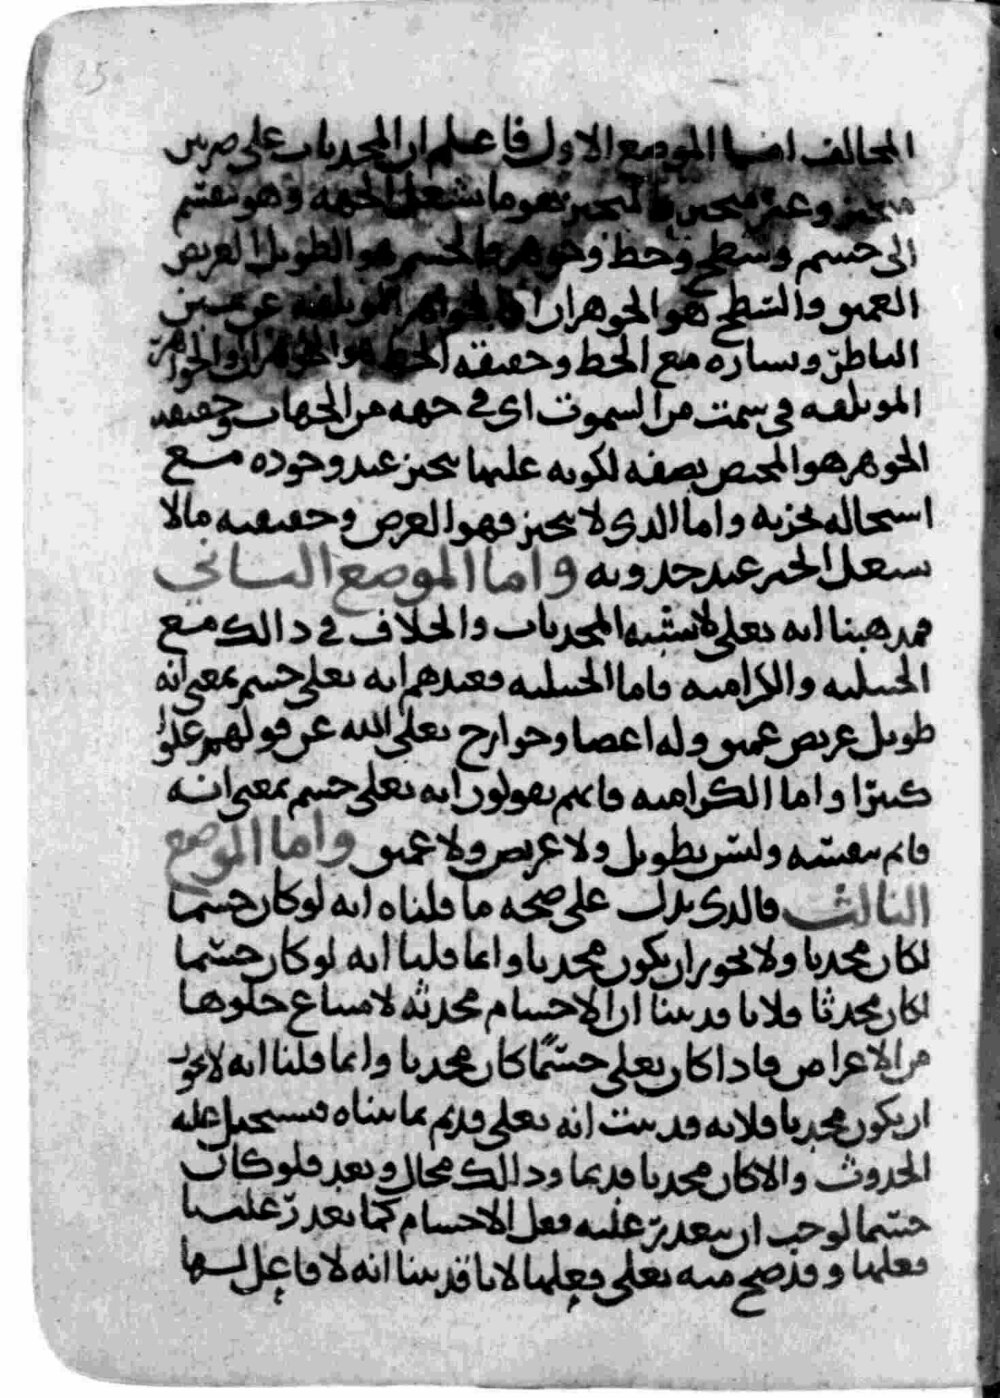 25
المخالف اما الموضع الاول فاعلم ان المحدثات على ضربين
متحيز وغير متحيز فالمتحيز هو ما يشغل الجهة وهو ينقسم
الى جسم وسطح وخط وجوهر فالجسم هو الطويل العريض
العميق والسطح هو الجوهران او الجواهر المؤتلفة عن يمين
الناظر ويساره مع الخط وحقيقة الخط هو الجوهران والجواهر
المؤتلفة في سمت من السموت اي في جهة من الجهات وحقيقة
الجوهر هو المختص بصفة لكونه عليها يتحيز عند وجوده مع
استحالة تحزيه واما الذي لا يتحيز فهو العرض وحقيقته مالا
يشغل الحيز عند حدوثه واما الموضع الثاني
فمذهبنا انه تعلى لا يشبه المحدثات والخلاف في ذالك مع
الحنبلية والكرامية فاما الحنبلية فعندهم انه تعلى جسم بمعنى انه
طويل عريض عميق وله اعضا وجوارح تعلى الله عن قولهم علوا
كبيرا واما الكرامية فانهم يقولون انه تعلى جسم بمعنى انه
قائم بنفسه وليس بطويل ولا عريض ولا عميق واما الموضع
الثالث فالذي يدل على صحة ما قلناه انه لو كان جسما
لكان محدثا ولا يجوز ان يكون محدثا وانما قلنا انه لو كان جسما
لكان محدثا فلانا قد بينا ان الاجسام محدثة لامتناع خلوها
من الاعراض فاذا كان تعلى جسما كان محدثا وانما قلنا انه لا يجوز
ان يكون محدثا فلانه قد ثبت انه تعلى قديم بما بيناه فيستحيل عليه
الحدوث والا كان محدثا قديما وذالك محال وبعد فلو كان
جسما لوجب ان يتعذر عليه فعل الاجسام كما تعذر علينا
فعلها وقد صح منه تعلى فعلها لانا قد بينا انه لا فاعل لها